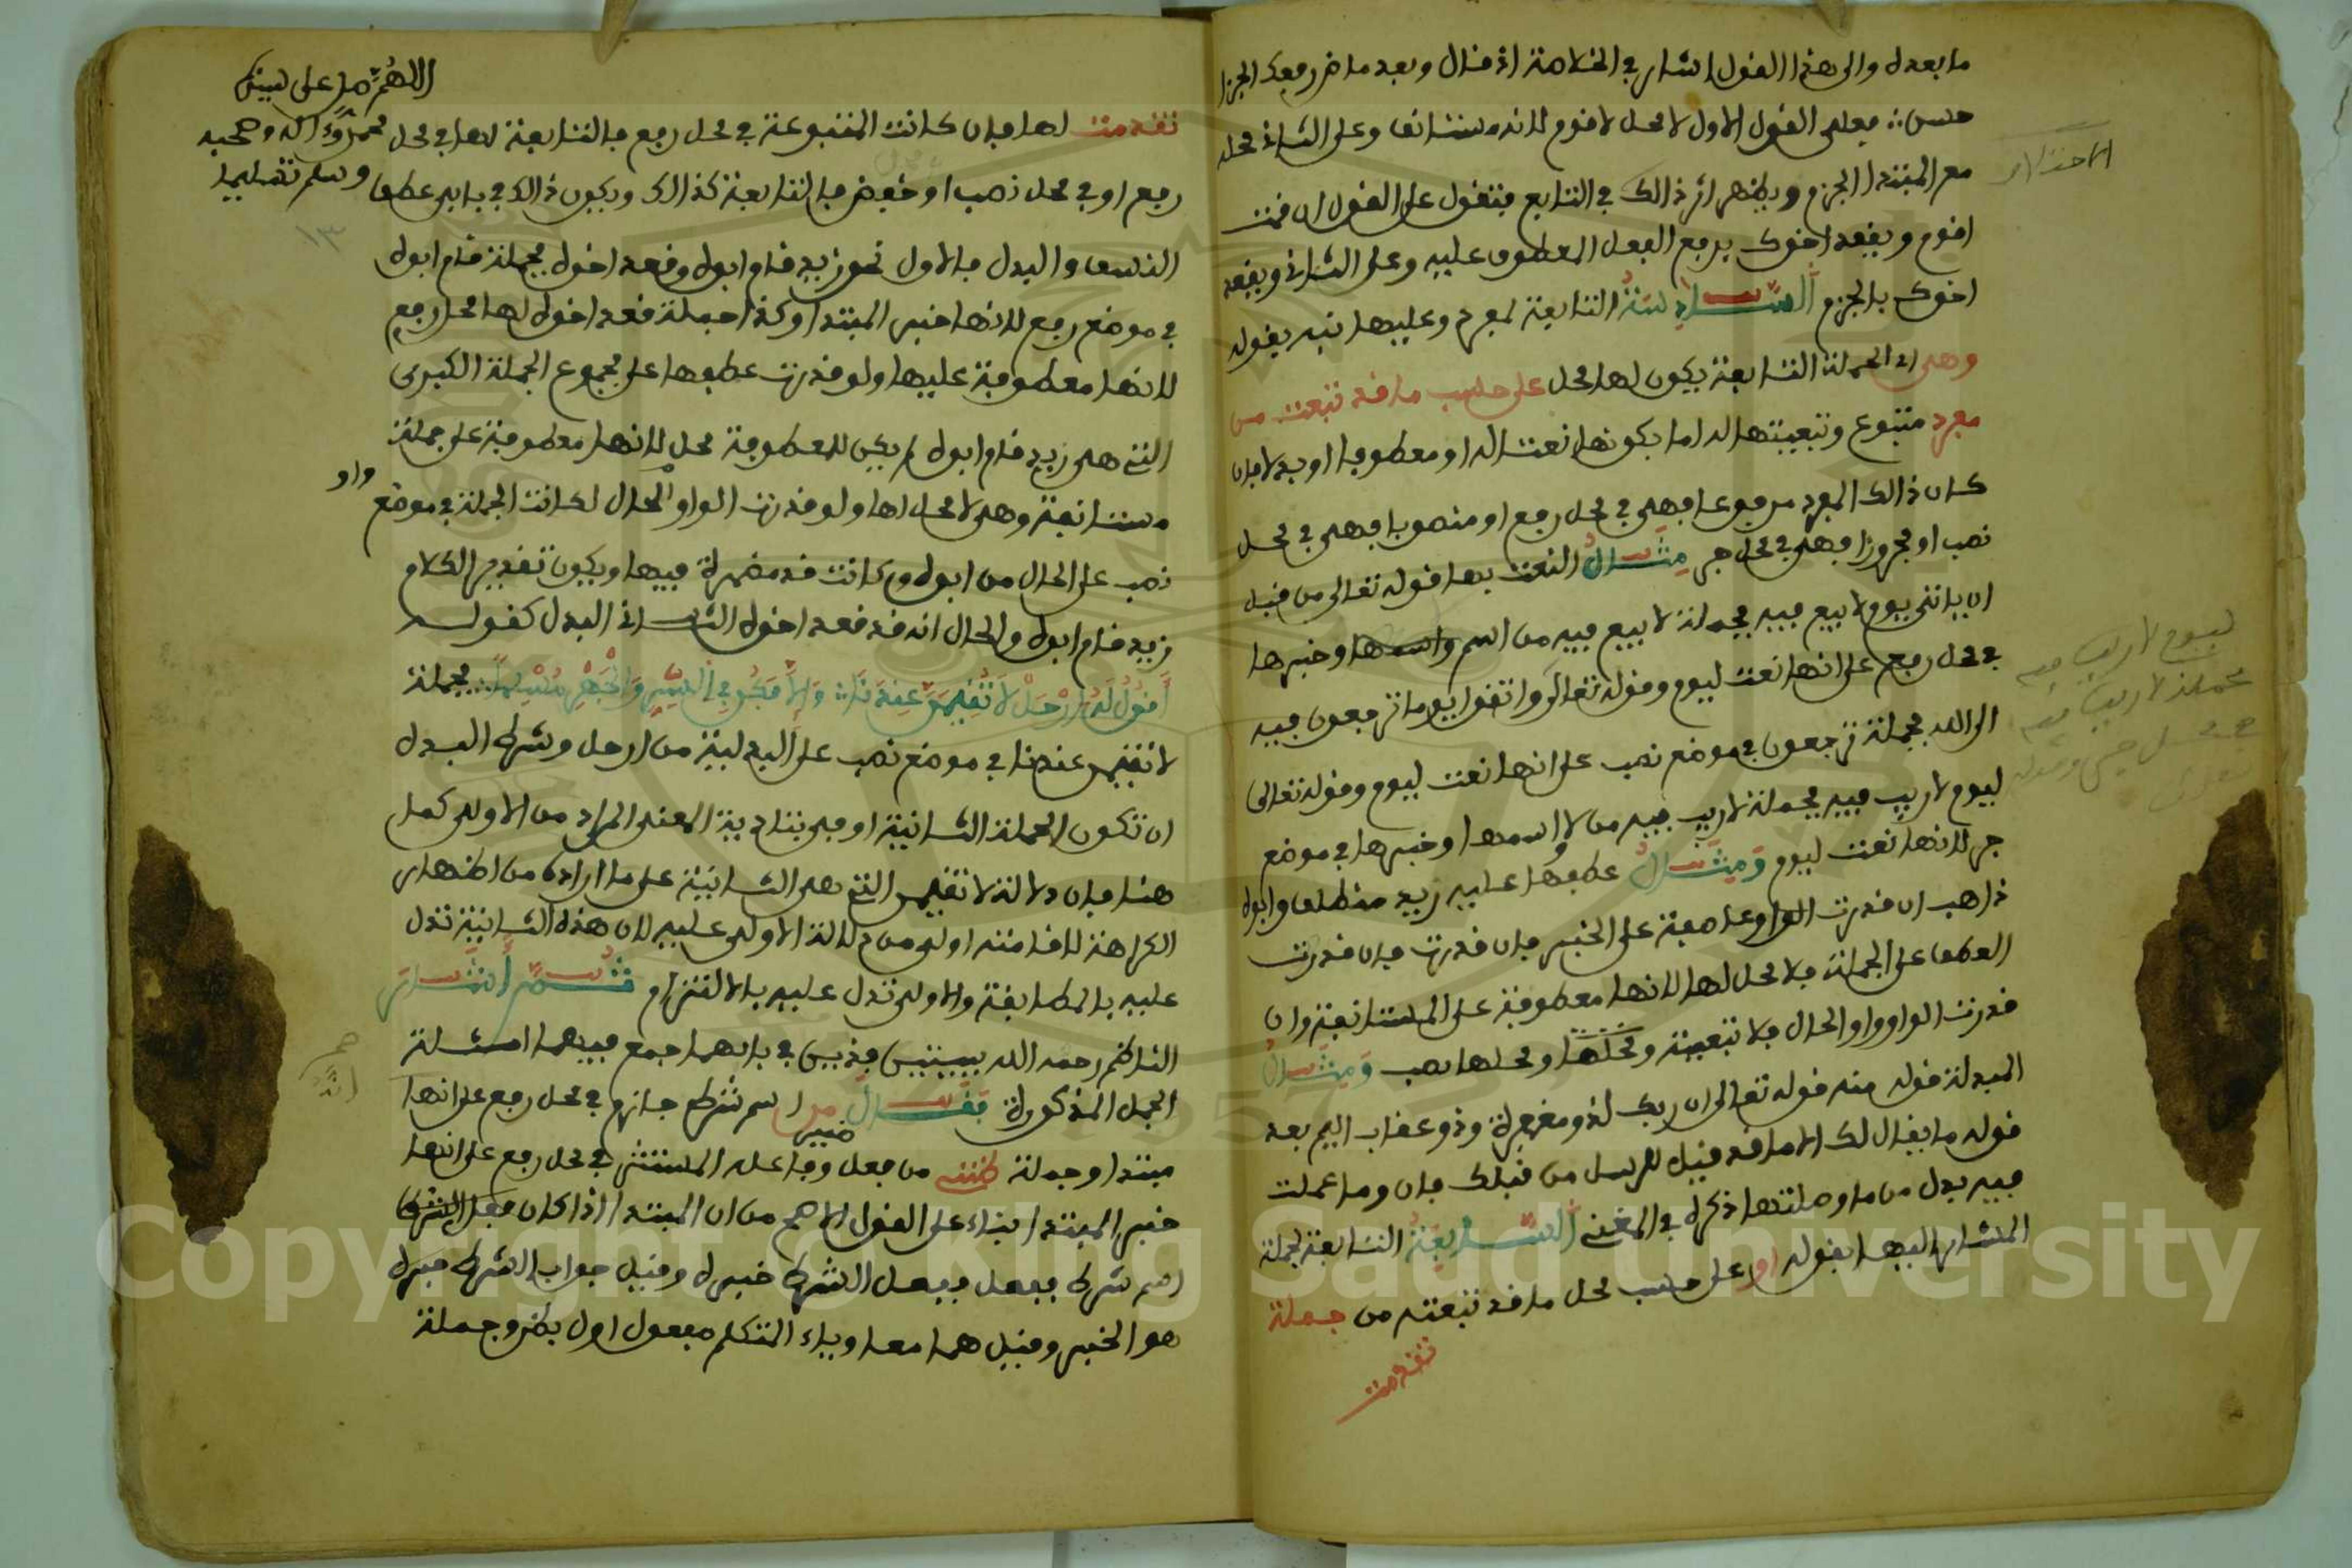 ما بعده والى هذا القول اشار في الخلاصة اذ قال وبعد ماض رفعك الجزا
حسن فعلى القول الاول لا محل لاقوم لانه مستانف وعلى الثاني محله
مع المبتدا الجزم ويظهر اثر ذالك في التابع فتقول على القول ان قمت
اقوم ويقعد اخوك برفع الفعل المعطوف عليه وعلى الثاني ويقعد
اخوك بالجزم السادسة التابعة لمفرد وعليها نبه بقوله
وهي اي الجملة التابعة يكون لها محل على حسب ما قد تبعت من
مفرد متبوع وتبعيتها له اما بكونها نعتا له او معطوفا او بدلا فان
كان ذالك المفرد مرفوعا فهي في محل رفع او منصوبا فهي في محل
نصب او مجرورا فهي في محل جر مثال النعت بها قوله تعالى من قبل
ان ياتي يوم لا بيع فيه فجملة لا بيع فيه من اسم واسمها وخبرها
في محل رفع على انها نعت ليوم وقوله تعالى واتقوا يوما ترجعون فيه
الى الله فجملة ترجعون في موضع نصب على انها نعت ليوم وقوله تعالى
ليوم لا ريب فيه فجملة لا ريب فيه من لا اسمها وخبرها في موضع
جر لانها نعت ليوم ومثال عطفها عليه زيد منطلق وابوه
ذاهب ان قدرت الواو عاطفة على الخبر فان قدرت فان قدرت
العطف على الجملة فلا محل لها لانها معطوفة على المستانفة وان
قدرت الواو واو الحال فلا تبعية ومحلها ومحلها نصب ومثال
المبدلة قوله منه قوله تعالى ان ربك لذو مغفرة وذو عقاب اليم بعد
قوله ما يقال لك الا ما قد قيل للرسل من قبلك فان وما عملت
فيه بدل من ما وصلتها ذكره في المغني السابعة التابعة لجملة
المشار اليها بقوله او على حسب محل ما قد تبعته من جملة
تقدمت
ليوم لا ريب فيه
فجملة لا ريب فيه
اللهم صل على نبينا
محمد وءاله وصحبه
وسلم تسليما
١٣
تقدمت لها فان كانت المتبوعة في محل رفع فالتابعة لها في محل
رفع او في محل نصب او خفض فالتابعة كذالك ويكون ذالك في بابي عطف
النسق والبدل فالاول نحو زيد قام ابوه وقعد اخوه فجملة قام ابوه
في موضع رفع لانها خبر المبتدا وكذا جملة قعد اخوه لها محل رفع
لانها معطوفة عليها ولو قدرت عطفها على مجموع الجملة الكبرى
التي هي زيد قام ابوه لم يكن للمعطوفة محل لانها معطوفة على جملة
مستانفة وهي لا محل لها ولو قدرت الواو الحال لكانت الجملة في موضع
واو
نصب على الحال من ابوه وكانت قد مضمرة فيها ويكون تقدير الكلام
زيد قام ابوه والحال انه قد قعد اخوه الثاني البدل كقوله
أقول له ارحل لا تقيمن عندنا والا فكن في السر والجهر مسلما فجملة
لا تقيمن عندنا في موضع نصب على البدلية من ارحل وشرط البدل
ان تكون الجملة الثانية اوفى بتادية المعنى المراد من الاولى كما
هنا فان دلالة لا تقيمن التي هي الثانية على ما اراده من اظهار
الكراهة لاقامته اولى من دلالة الاولى عليه لان هذه الثانية تدل
عليه بالمطابقة والاولى تدل عليه بالالتزام ثم اشار
الناظم رحمه الله ببيتين فذيين في بابهما جمع فيهما امثلة
الجمل المذكورة فقال من اسم شرط جازم في محل رفع على انها
مبتدا وجملة ظنني من فعل وفاعله المستتر في محل رفع على انها
ضمير
خبر المبتدا بناء على القول الاصح من ان المبتدا اذا كان فعل الشرط
اسم شرط ففعل الشرط خبره وقيل جواب الشرط خبره
هو الخبر وقيل هما معا وياء المتكلم مفعول اول بظن وجملة
Copyright © King Saud University
1957